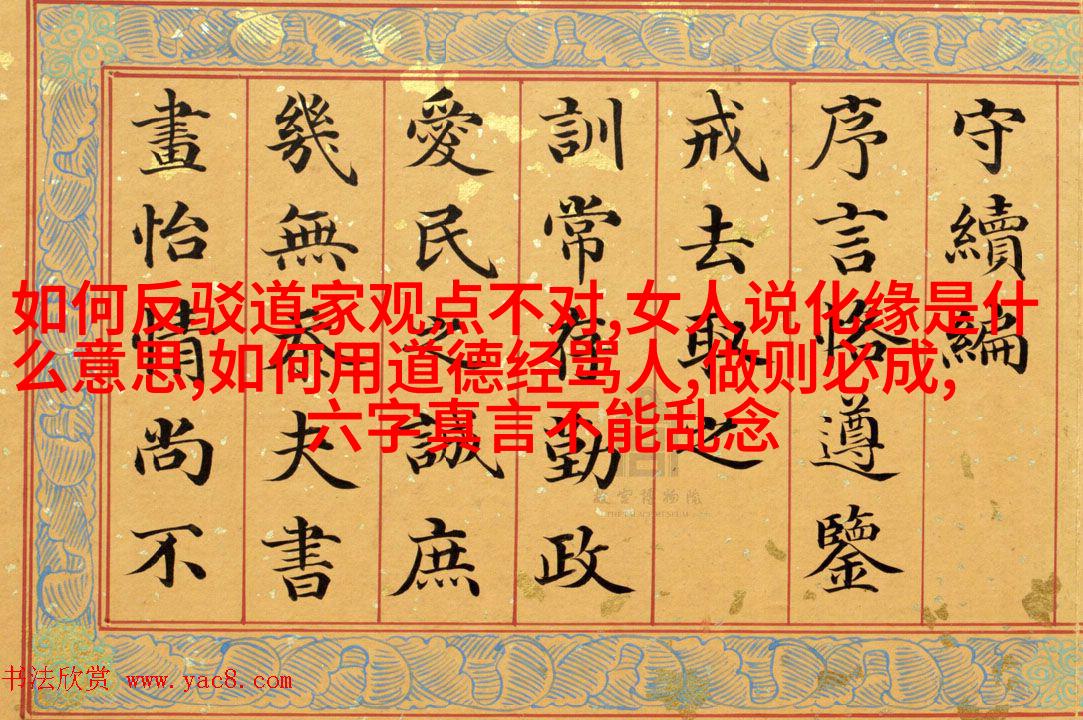 守續編
序言恪遵鑒
戒去取之
訓常勤政
愛民之誠庶
幾無忝夫書
畫怡情尚不
如何反驳道家观点不对,女人说化缘是什
么意思,如何用道德经骂人,做则必成,
六字真言不能乱念
故宮博物院
THE PALACE MUSEUM
书法欣赏 www.yac8.com